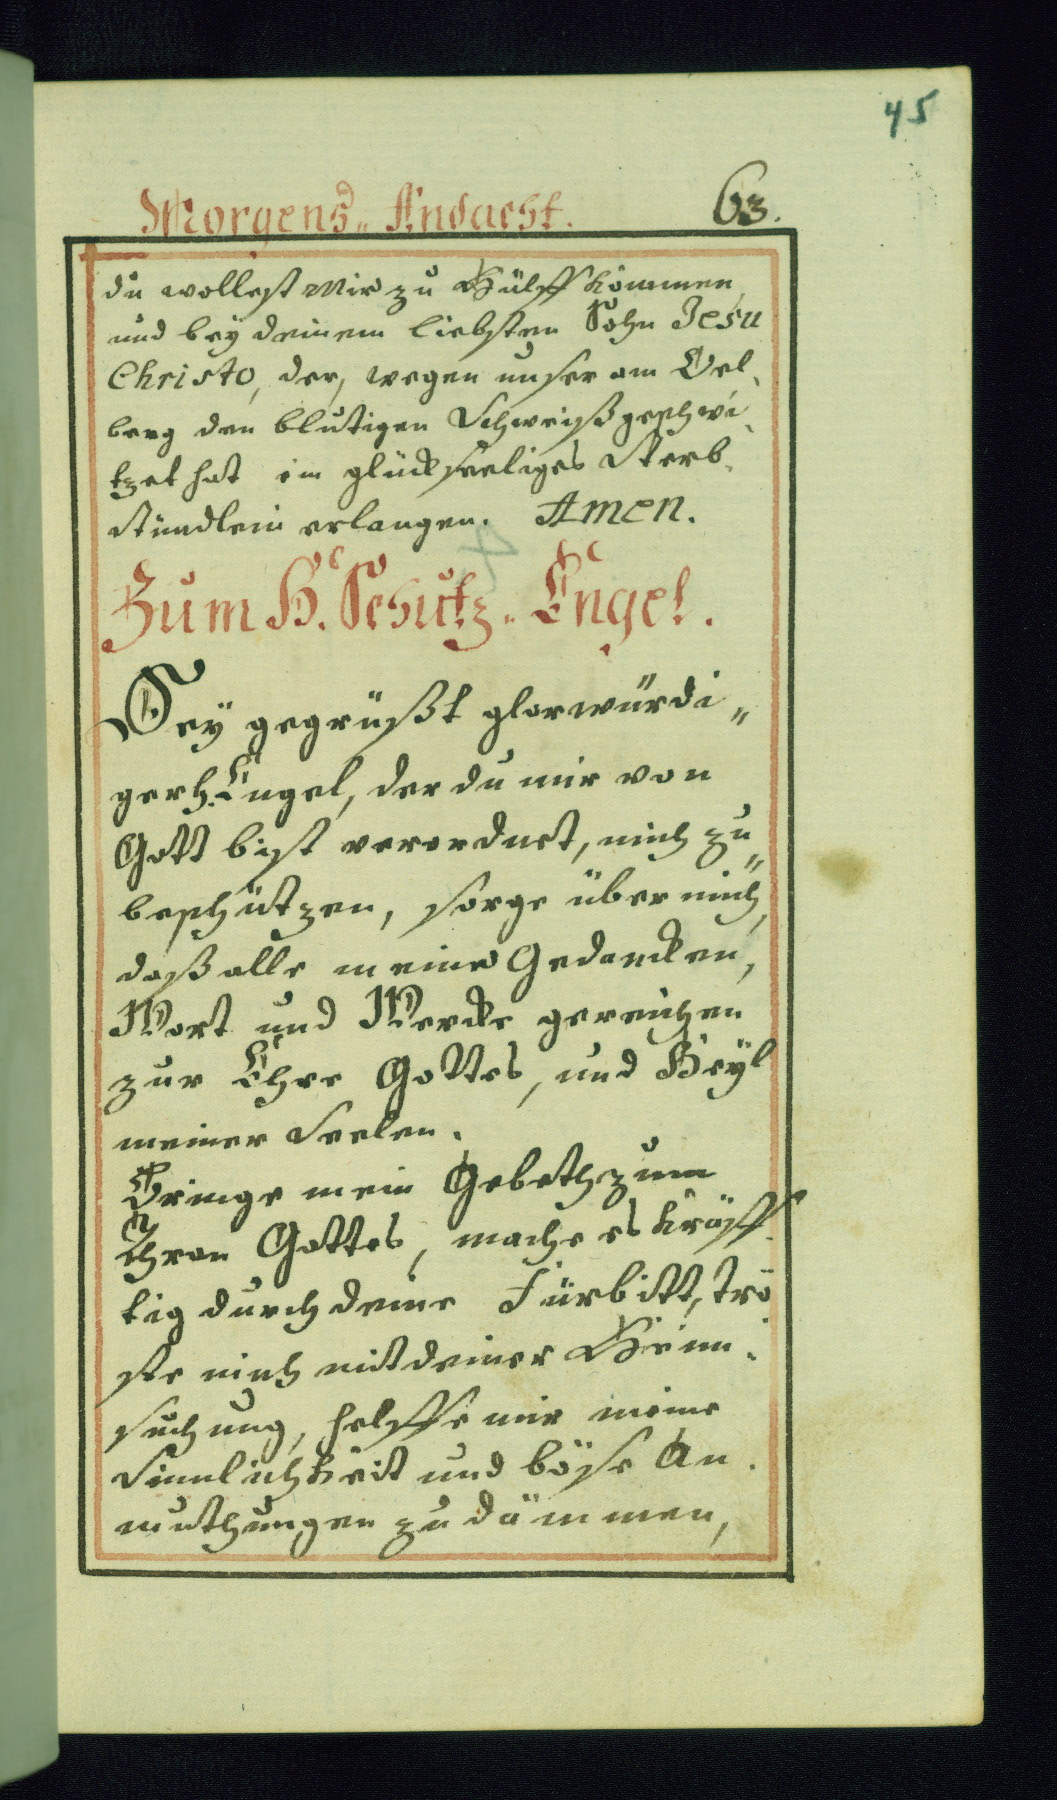 45
Morgens„ Andacht. 63.
du wollest mir zu Hülff kommen,
und bey deinem liebsten Sohn Jesu
Christo, der, wegen unser am Oel-
berg den blutigen Schweiß geschwi-
tzet hat ein glückseeliges Sterb-
stündlein erlangen. Amen.
Zum H. Schutz„ Engel.
Sey gegrüßt glorwürdi„
ger h. Engel, der du mir von
Gott bist verordnet, mich zu„
beschützen, sorge über mich,
daß alle meine Gedancken,
Wort und Wercke gereichen
zur Ehre Gottes, und Heyl
meiner Seelen.
Bringe mein Gebeth zum
Thron Gottes, mache es kräff-
tig durch deine Fürbitt, trö
ste mich mit deiner Heim-
suchung, helffe mir meine
Sinnlichkeit und böse An-
muthungen zu dämmen,